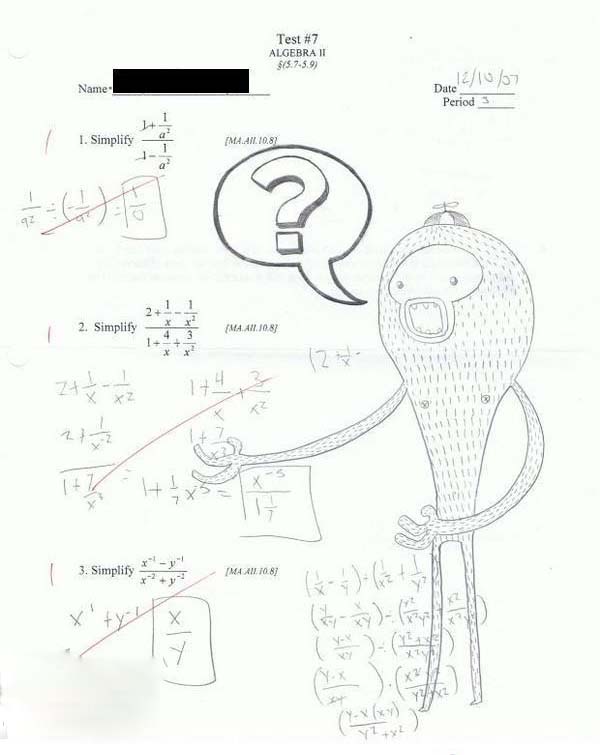 Test #7
ALGEBRA II
§(5.7-5.9)
Name
Date 12/10/07
Period 3
1. Simplify (1 + 1/a²)/(1 - 1/a²) [MA.AII.10.8]
1/a² ÷ (-1/a²) = 1/0
?
2. Simplify (2 + 1/x - 1/x²)/(1 + 4/x + 3/x²) [MA.AII.10.8]
(2 + 1/x -
2 + 1/x - 1/x² 1 + 4/x + 3/x²
2 + 1/x⁻² 1 + 7/x³
1 + 7/x³ = 1 + 1/7 x⁻⁵ = x⁻⁵/1 1/7
3. Simplify (x⁻¹ - y⁻¹)/(x⁻² + y⁻²) [MA.AII.10.8]
x¹ + y⁻¹ x/y
(1/x - 1/y) ÷ (1/x² + 1/y²)
(y/xy - x/xy) ÷ (y²/x²y² + x²/x²y²)
(y-x/xy) ÷ (y²+x²/x²y²)
(y-x/xy) · (x²y²/y²+x²)
(y-x(xy)/y²+x²)